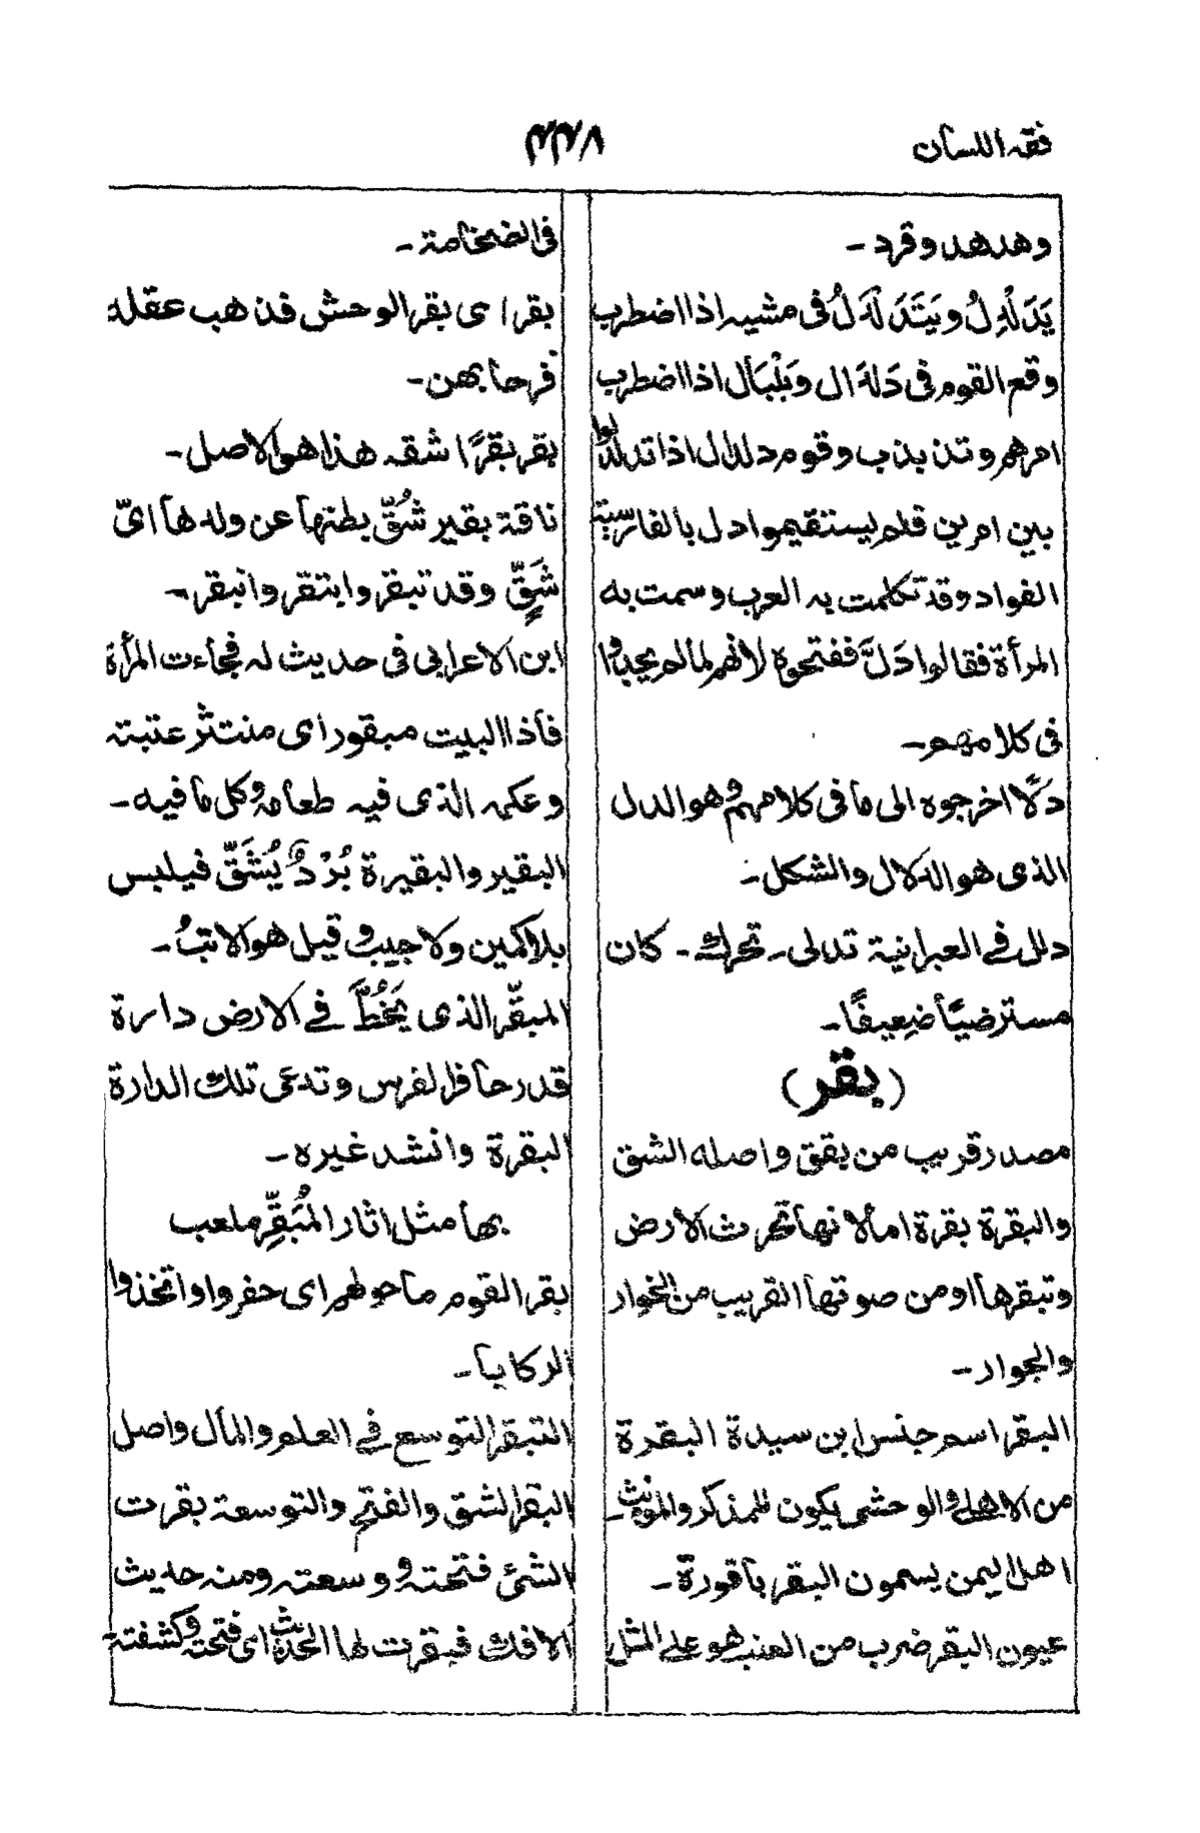 فقه اللسان
٢٢٨
وهدهد وقرد -
يَدَلْهِلُ ويَتَدَلْهَلُ فی مشيه اذا اضطرب
وقع القوم فی دَلهَال وَبَلْبَال اذا اضطرب
امرهم وتذبذب وقوم دلدال اذا تدلدلوا
بين امرين فلم يستقيموا دل بالفارسية
الفواد وقد تكلمت به العرب وسمت به
المرأة فقالوا دَلَّ ففتحوه لأنهم لما لم يجدوا
فی كلامهم -
دَلًّا اخرجوه الى ما فی كلامهم وهو الدل
الذی هو الدلال والشكل -
دلل فے العبرانية تدلى - تحرك - كان
مسترضيًا ضعيفًا -
(بقر)
مصدر قريب من بقق واصله الشق
والبقرة بقرة اما لانها تحرث الارض
وتبقرها او من صوتها القريب من الخوار
والجوار -
البقر اسم جنس ابن سيدة البقرة
من الاهلی والوحشی يكون للمذكر والمونث -
اهل اليمن يسمون البقر باقورة -
عيون البقر ضرب من العنب هو علے المثل
فی الضخامة -
بقر ای بقر الوحش فذهب عقله
فرحا بهن -
بقر بقرًا شقه هذا هو الاصل -
ناقة بقير شُقّ بطنها عن ولدها ایّ
شَقٍّ وقد تبقر وابتقر وانبقر -
ابن الاعرابی فی حديث له فجاءت المرأة
فاذا البيت مبقور ای منتثر عتبته
وعكمه الذی فيه طعامه وكل ما فيه -
البقير والبقيرة بُرْدٌ يُشَقّ فيلبس
بلا كمين ولا جيب وقيل هو الاتبُ -
المبقّر الذی يَخُطُّ فے الارض دارة
قدر حافر الفرس وتدعی تلك الدارة
البقرة وانشد غيره -
بها مثل اثار المُبَقِّر ملعب
بقر القوم ما حولهم ای حفروا واتخذوا
الركايا -
التبقر التوسع فے العلم والمال واصل
البقر الشق والفتح والتوسعة بقرت
الشئ فتحته ووسعته ومنه حديث
الافك فبقرت لها الحديث ای فتحته وكشفته -